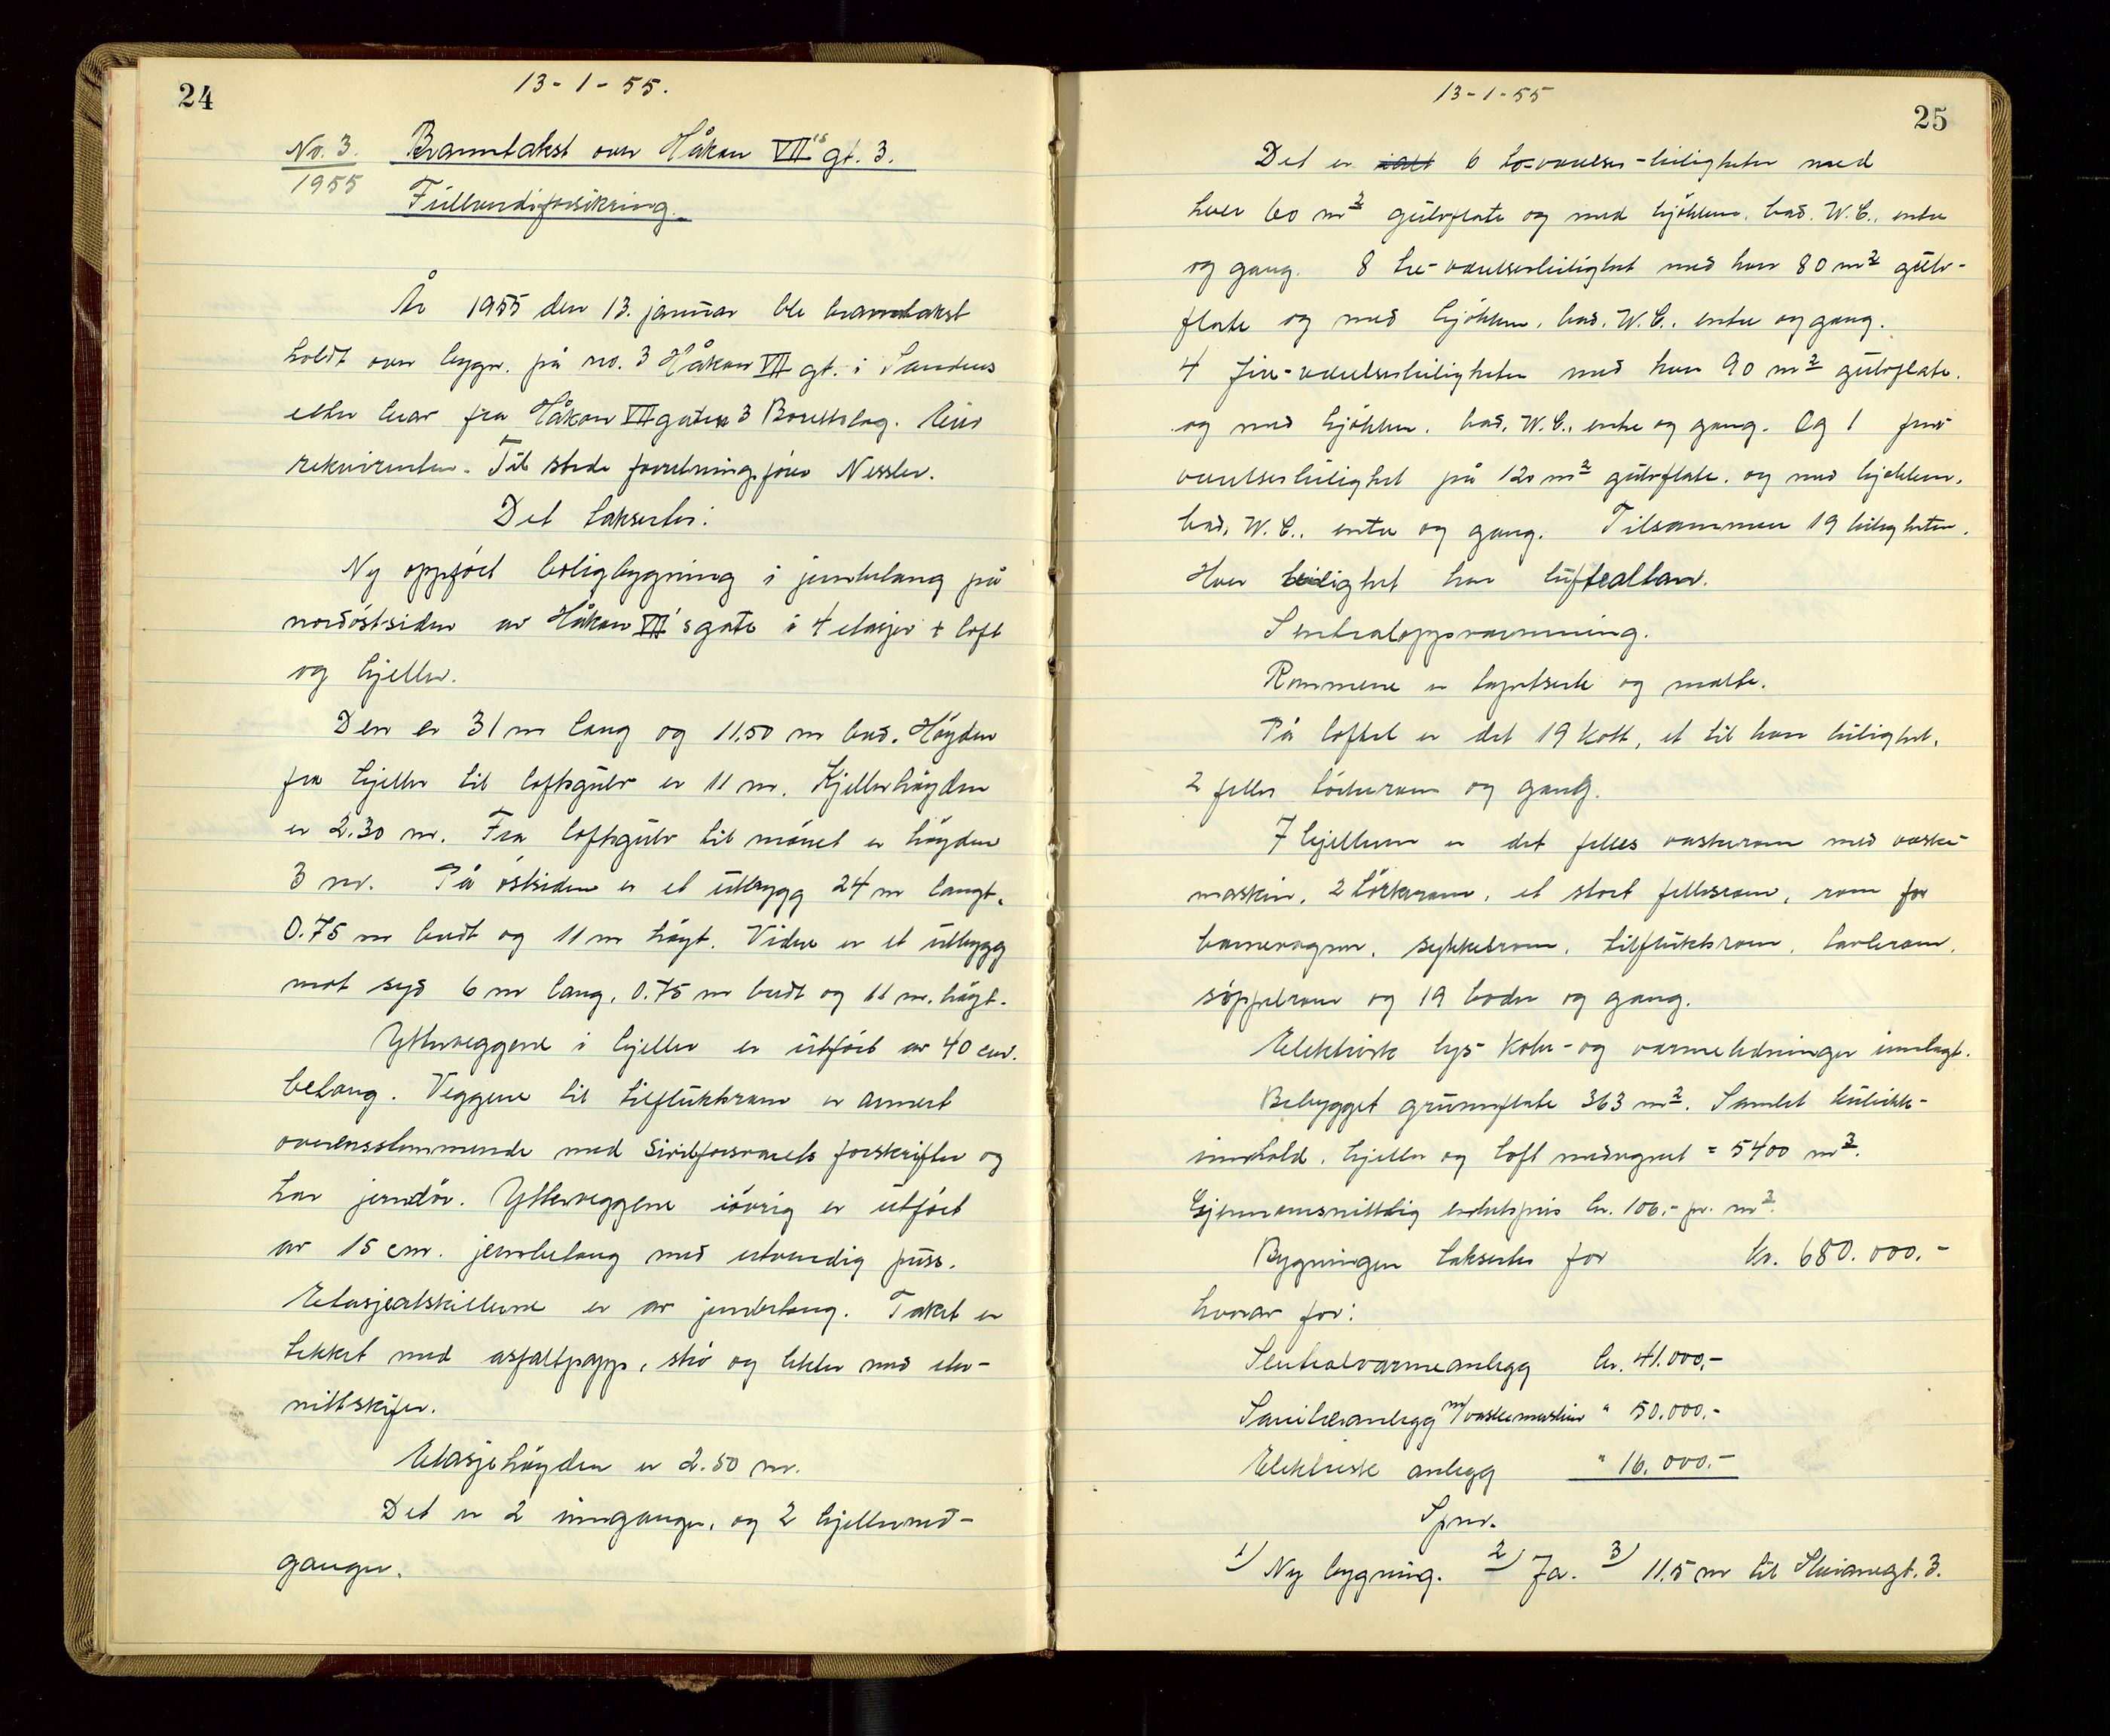 24
13-1-55.
No. 3.
1955
Branntakst over Håkon VII's gt. 3.
Fullverdiforsikring.
År 1955 den 13. januar ble branntakst
holdt over bygn. på no. 3 Håkon VII gt. i Sandnes
etter krav fra Håkon VII gaten 3 Borettslag. Eier
rekvirenten. Til stede forretningsfører Nessler.
Det takseres:
Ny oppført boligbygning i jernbetong på
nordöstsiden av Håkon VII's gate i 4 etasjer + loft
og kjeller.
Den er 31 m lang og 11.50 m bred. Höyden
fra kjeller til loftsgulv er 11 m. Kjellerhöyden
er 2.30 m. Fra loftsgulv til mönet er höyden
3 m. På östsiden er et utbygg 24 m langt,
0.75 m bredt og 11 m höyt. Videre er et utbygg
mot syd 6 m lang, 0.75 m bredt og 11 m. höyt.
Ytterveggene i kjeller er utfört av 40 cm.
betong. Veggene til tilfluktsrom er armert
overensstemmende med Sivilforsvarets forskrifter og
har jerndör. Ytterveggene iövrig er utfört
av 15 cm. jernbetong med utvendig puss.
Etasjeatskillerne er av jernbetong. Taket er
tekket med asfaltpapp, strö og lekter med eter-
nittskifer.
Etasjehöyden er 2.50 m.
Det er 2 innganger, og 2 kjellerned-
ganger.
25
13-1-55
Det er ialt 6 to-værelses-leiligheter med
hver 60 m² gulvflate og med kjökken, bad, W.C., entre
og gang. 8 tre-værelsesleilighet med hver 80 m² gulv-
flate og med kjökken, bad, W.C., entre og gang.
4 fire-værelsesleiligheter med hver 90 m² gulvflate.
og med kjökken, bad, W.C., entre og gang. Og 1 fem-
værelsesleilighet på 120 m² gulvflate, og med kjökken,
bad, W.C., entre og gang. Tilsammen 19 leiligheter.
Hver leilighet har luftealtan.
Sentraloppvarmning.
Rommene er tapetserte og malte.
På loftet er det 19 kott, et til hver leilighet,
2 felles törkerom og gang.
I kjelleren er det felles vaskerom med vaske-
maskin, 2 törkerom, et stort fellesrom, rom for
barnevogner, sykkelrom, tilfluktsrom,
söppelrom og 19 boder og gang.
Elektrisk lys- koke- og varmeledninger innlagt.
Bebygget grunnflate 363 m². Samlet kubikk-
innhold, kjeller og loft medregnet = 5400 m³.
Gjennomsnittlig enhetspris kr. 106.- pr. m³.
Bygningen takseres for kr. 680.000.-
hvorav for:
Sentralvarmeanlegg kr. 41.000,-
Sanitæranlegg m/vaskemaskin " 50.000,-
Elektriske anlegg " 16.000.-
Spm.
1) Ny bygning. 2) Ja. 3) 11.5 m til